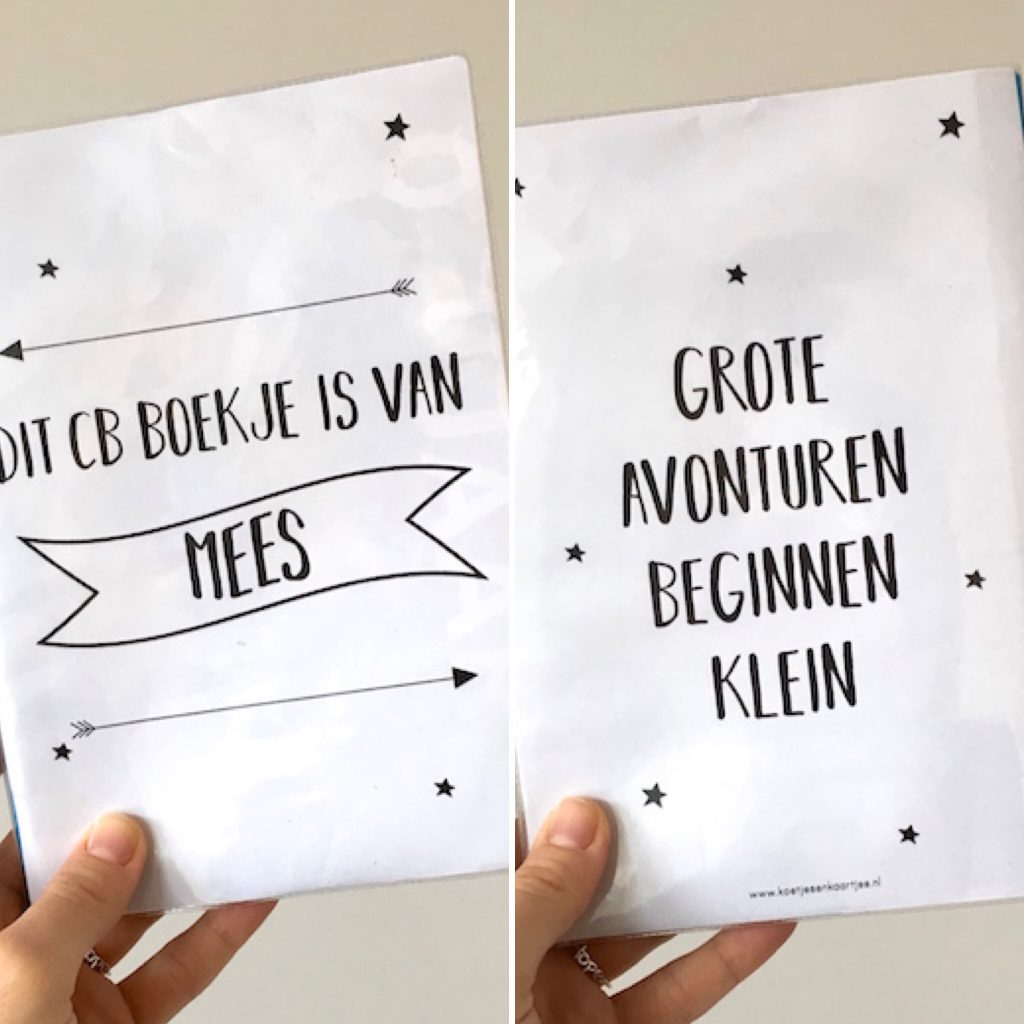 DIT CB BOEKJE IS VAN
MEES
GROTE
AVONTUREN
BEGINNEN
KLEIN
www.koetjesenkaartjes.nl